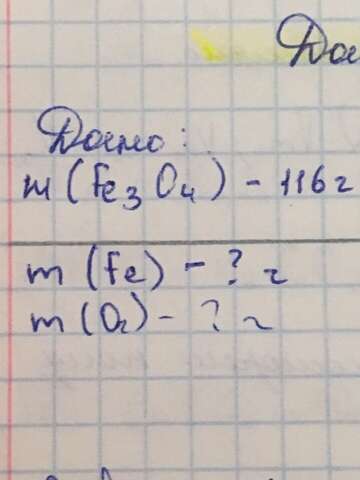 Дано:
m(Fe3O4) - 116 г
m(Fe) - ? г
m(O2) - ? г